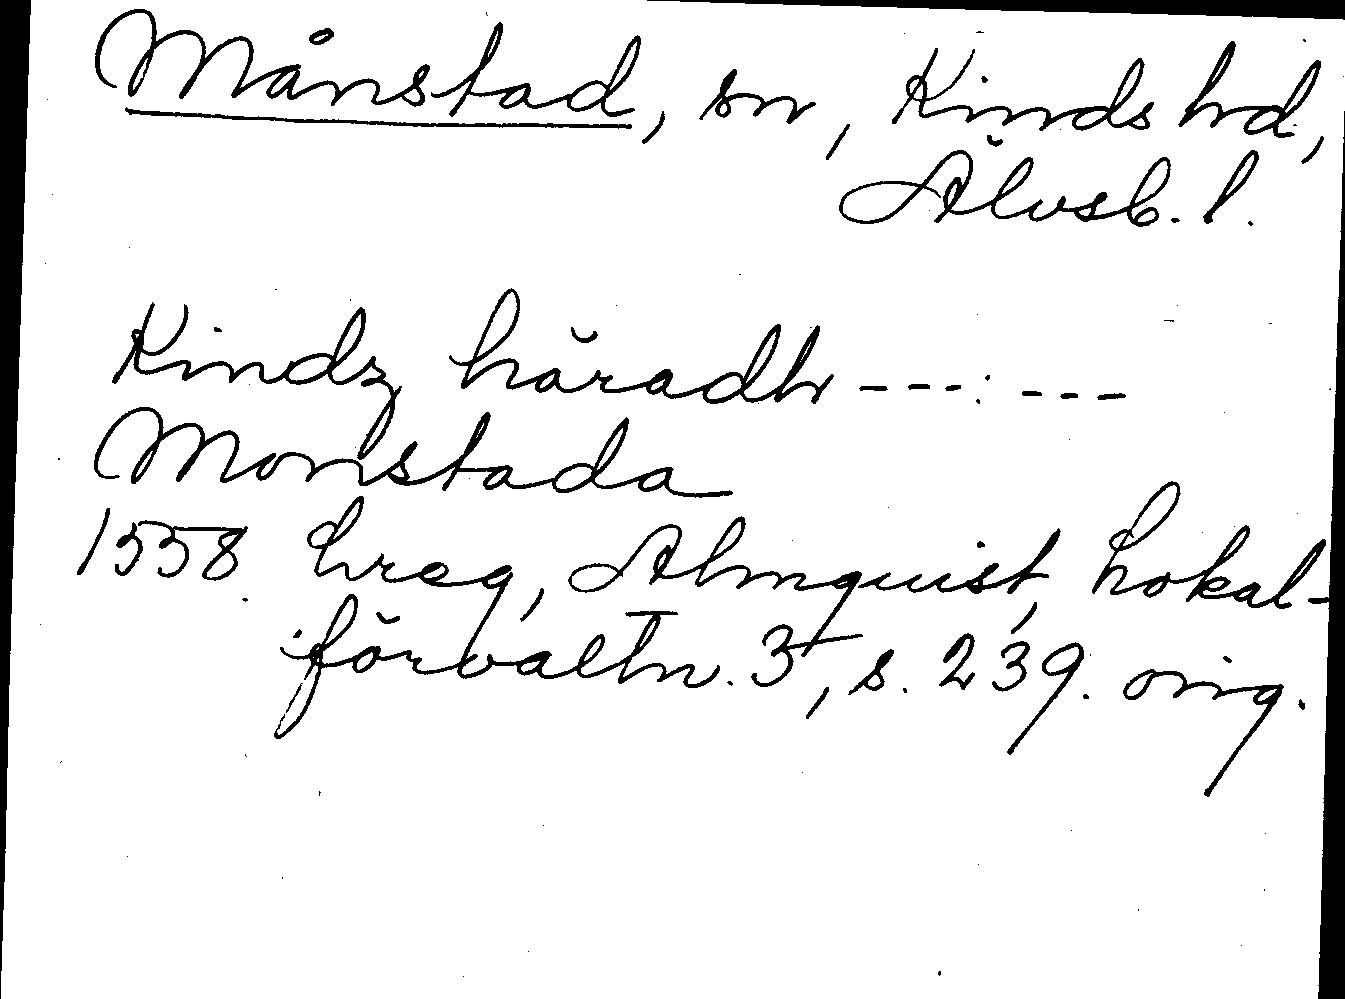 Månstad, sn, Kinds hd,
Älvsb. l.
Kindz häradh --- ---
Monstada
1558 Lreg, Almquist, Lokal-
förvaltn. 3, s. 239. orig.